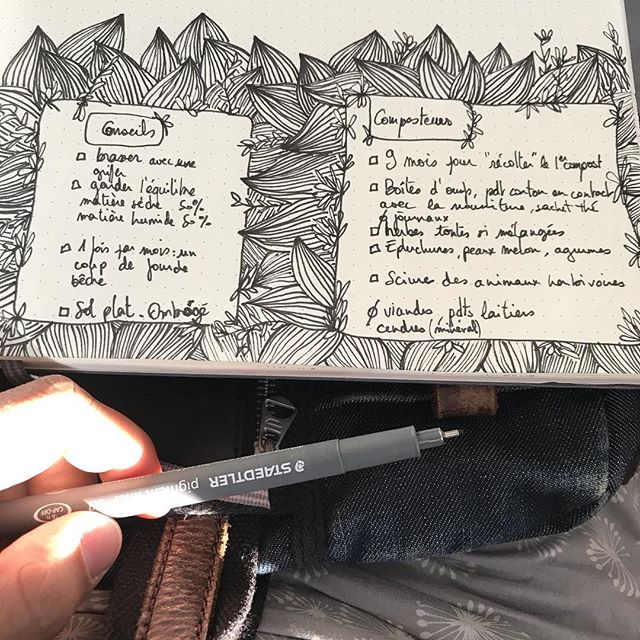 Conseils
□ brasser avec une
griffe
□ garder l'équilibre
matière sèche 50%
matière humide 50%
□ 1 fois par mois : un
coup de fourche
bêche
□ Sol plat - Ombragé
Composteurs
□ 9 mois pour "récolter" le 1er compost
□ Boîtes d'œufs, pdt carton en contact
avec la nourriture, sachet thé
ø journaux
□ herbes tontes si mélangées
□ Epluchures, peaux melon, agrumes
□ Sciure des animaux herbivores
ø viandes, pdts laitiers
cendres (minéral)
STAEDTLER pigment
CAP-OFF